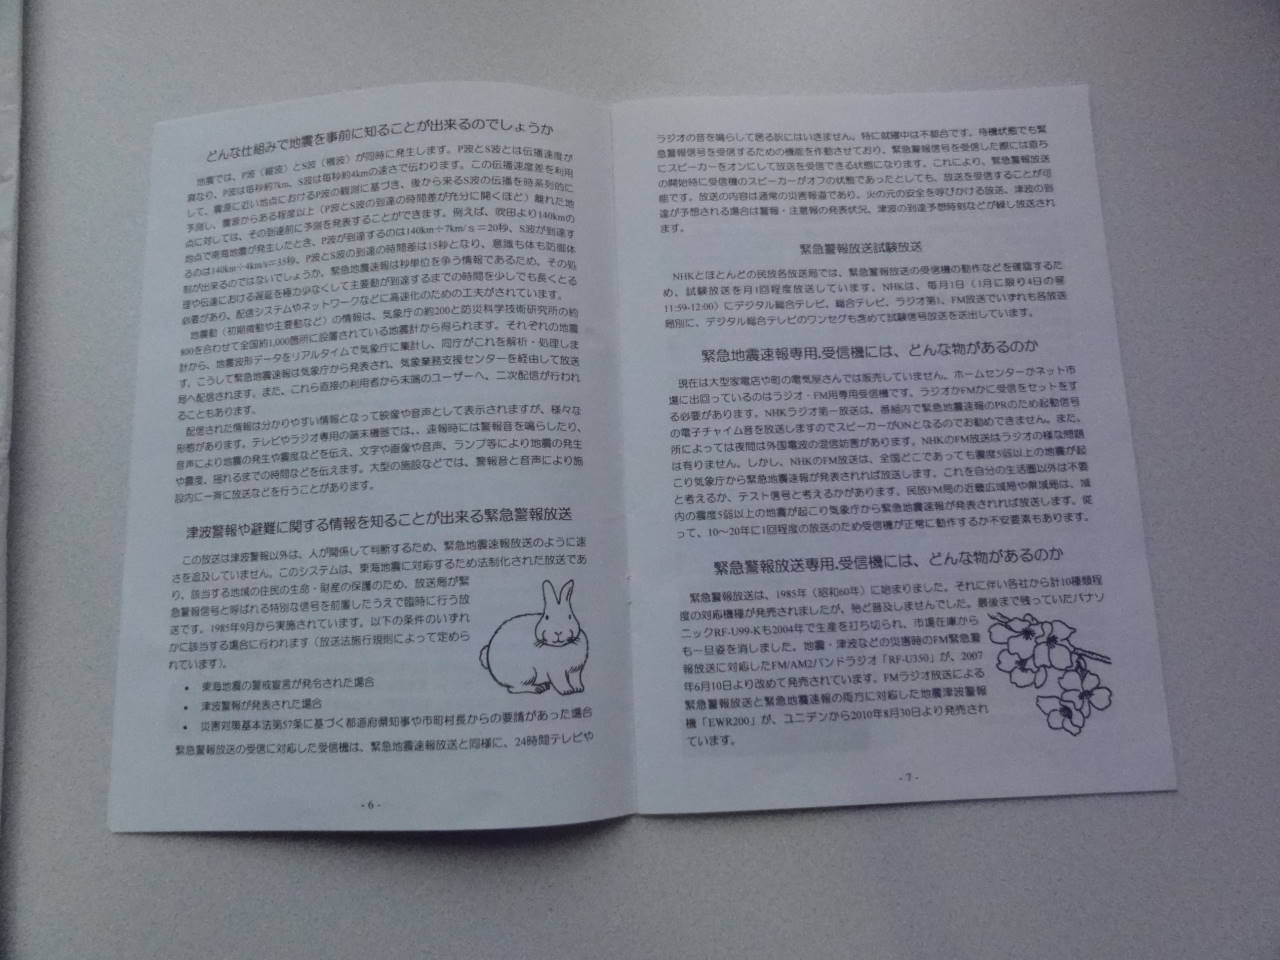 どんな仕組みで地震を事前に知ることが出来るのでしょうか
地震では、P波（縦波）とS波（横波）が同時に発生します。P波とS波とは伝播速度が
異なり、P波は毎秒約7km、S波は毎秒約4kmの速さで伝わります。この伝播速度差を利用
して、震源に近い地点におけるP波の観測に基づき、後から来るS波の伝播を時系列的に
予測し、震源からある程度以上（P波とS波の到達の時間差が充分に開くほど）離れた地
点に対しては、その到達前に予測を発表することができます。例えば、吹田より140kmの
地点で南海地震が発生したとき、P波が到達するのは140km÷7km/s＝20秒、S波が到達す
るのは140km÷4km/s=35秒、P波とS波の到達の時間差は15秒となり、意識も体も防御体
制が出来るのではないでしょうか。緊急地震速報は秒単位を争う情報であるため、その処
理や伝達における遅延を極力少なくして主要動が到達するまでの時間を少しでも長くとる
必要があり、配信システムやネットワークなどに高速化のための工夫がされています。
地震動（初期微動や主要動など）の情報は、気象庁の約200と防災科学技術研究所の約
800を合わせて全国約1,000箇所に設置されている地震計から得られます。それぞれの地震
計から、地震波形データをリアルタイムで気象庁に集計し、同庁がこれを解析・処理しま
す。こうして緊急地震速報は気象庁から発表され、気象業務支援センターを経由して放送
局へ配信されます。また、これら直接の利用者から末端のユーザーへ、二次配信が行われ
ることもあります。
配信された情報は分かりやすい情報となって映像や音声として表示されますが、様々な
形態があります。テレビやラジオ専用の端末機器では、、速報時には警報音を鳴らしたり、
音声により地震の発生や震度などを伝え、文字や画像や音声、ランプ等により地震の発生
や震度、揺れるまでの時間などを伝えます。大型の施設などでは、警報音と音声により施
設内に一斉に放送などを行うことがあります。
津波警報や避難に関する情報を知ることが出来る緊急警報放送
この放送は津波警報以外は、人が関係して判断するため、緊急地震速報放送のように速
さを追及していません。このシステムは、東海地震に対応するため法制化された放送であ
り、該当する地域の住民の生命・財産の保護のため、放送局が緊
急警報信号と呼ばれる特別な信号を前置したうえで臨時に行う放
送です。1985年9月から実施されています。以下の条件のいずれ
かに該当する場合に行われます（放送法施行規則によって定めら
れています）。
• 東海地震の警戒宣言が発令された場合
• 津波警報が発表された場合
• 災害対策基本法第57条に基づく都道府県知事や市町村長からの要請があった場合
緊急警報放送の受信に対応した受信機は、緊急地震速報放送と同様に、24時間テレビや
- 6 -
ラジオの音を鳴らして居る訳にはいきません。特に就寝中は不都合です。待機状態でも緊
急警報信号を受信するための機能を作動させており、緊急警報信号を受信した際には直ち
にスピーカーをオンにして放送を受信できる状態になります。これにより、緊急警報放送
の開始時に受信機のスピーカーがオフの状態であったとしても、放送を受信することが可
能です。放送の内容は通常の災害報道であり、火の元の安全を呼びかける放送、津波の到
達が予想される場合は警報・注意報の発表状況、津波の到達予想時刻などが繰し放送され
ます。
緊急警報放送試験放送
NHKとほとんどの民放各放送局では、緊急警報放送の受信機の動作などを確認するた
め、試験放送を月1回程度放送しています。NHKは、毎月1日（1月に限り4日の昼
11:59-12:00）にデジタル総合テレビ、総合テレビ、ラジオ第1、FM放送でいずれも各放送
局別に、デジタル総合テレビのワンセグも含めて試験信号放送を送出しています。
緊急地震速報専用.受信機には、どんな物があるのか
現在は大型家電店や町の電気屋さんでは販売していません。ホームセンターかネット市
場に出回っているのはラジオ・FM用専用受信機です。ラジオかFMかに受信をセットをす
る必要があります。NHKラジオ第一放送は、番組内で緊急地震速報のPRのため起動信号
の電子チャイム音を放送しますのでスピーカーがONとなるのでお勧めできません。また、
所によっては夜間は外国電波の混信妨害があります。NHKのFM放送はラジオの様な問題
は有りません。しかし、NHKのFM放送は、全国どこであっても震度5弱以上の地震が起
こり気象庁から緊急地震速報が発表されれば放送します。これを自分の生活圏以外は不要
と考えるか、テスト信号と考えるかがあります。民放FM局の近畿広域局や県域局は、域
内の震度5弱以上の地震が起こり気象庁から緊急地震速報が発表されれば放送します。従
って、10～20年に1回程度の放送のため受信機が正常に動作するか不安要素もあります。
緊急警報放送専用.受信機には、どんな物があるのか
緊急警報放送は、1985年（昭和60年）に始まりました。それに伴い各社から計10種類程
度の対応機種が発売されましたが、殆ど普及しませんでした。最後まで残っていたパナソ
ニックRF-U99-Kも2004年で生産を打ち切られ、市場在庫から
も一旦姿を消しました。地震・津波などの災害時のFM緊急警
報放送に対応したFM/AM2バンドラジオ「RF-U350」が、2007
年6月10日より改めて発売されています。FMラジオ放送による
緊急警報放送と緊急地震速報の両方に対応した地震津波警報
機「EWR200」が、ユニデンから2010年8月30日より発売され
ています。
- 7 -